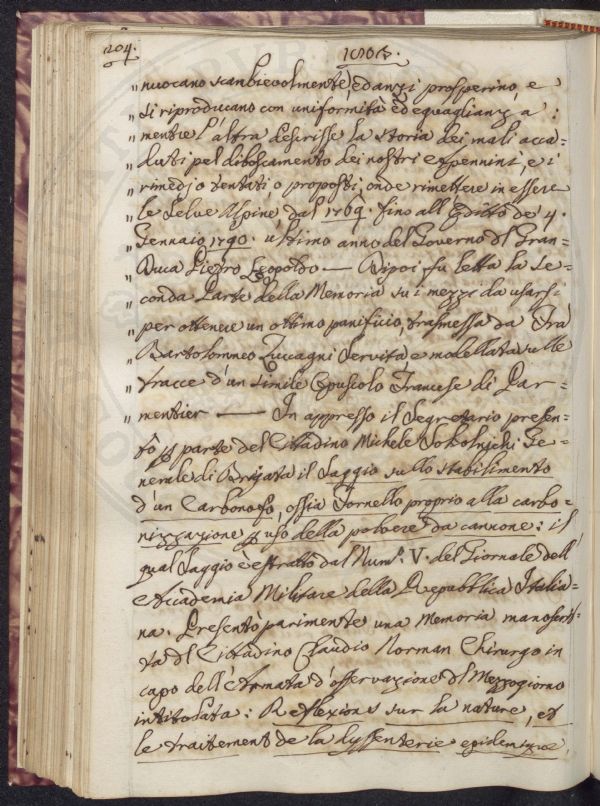 204.
180
„ nuocano scanbievolmente, ed anzi prosperino, e
„ si riproducano con uniformità ed eguaglianza:
„ mentre l'altra descrisse la storia dei mali acca-
„ duti pel diboscamento dei nostri Appennini, e i
„ rimedj o tentati, o proposti, onde rimettere in essere
„ le Selve Alpine dal 1769. fino all Editto de' 4.
„ Gennaio 1790. ultimo anno del Governo del Gran-
„ Duca Pietro Leopoldo — Dipoi fu letta la Se-
„ conda Parte della Memoria su i mezzi da usarsi
„ per ottenere un ottimo panificio, trasmessa da Fra
„ Bartolommeo Zuccagni Servita e modellata sulle
„ tracce d'un simile Opuscolo Francese di Par-
„ mentier — In appresso il Segretario presen-
tò p parte del Cittadino Michele Sokolnicki Ge-
nerale di Brigata il Saggio sullo stabilimento
d'un Carbonofo, ossia Fornello proprio alla carbo-
nizzazione p uso della polvere da cannone: il
qual Saggio è estratto dal Num.o V. del Giornale dell'
Accademia Militare della Repubblica Italia-
na. Presentò parimente una Memoria manoscrit-
ta del Cittadino Claudio Norman Chirurgo in
capo dell'Armata d'osservazione del Mezzogiorno
intitolata: Reflexions sur la nature, et
le traitement de la dyssenterie epidemique